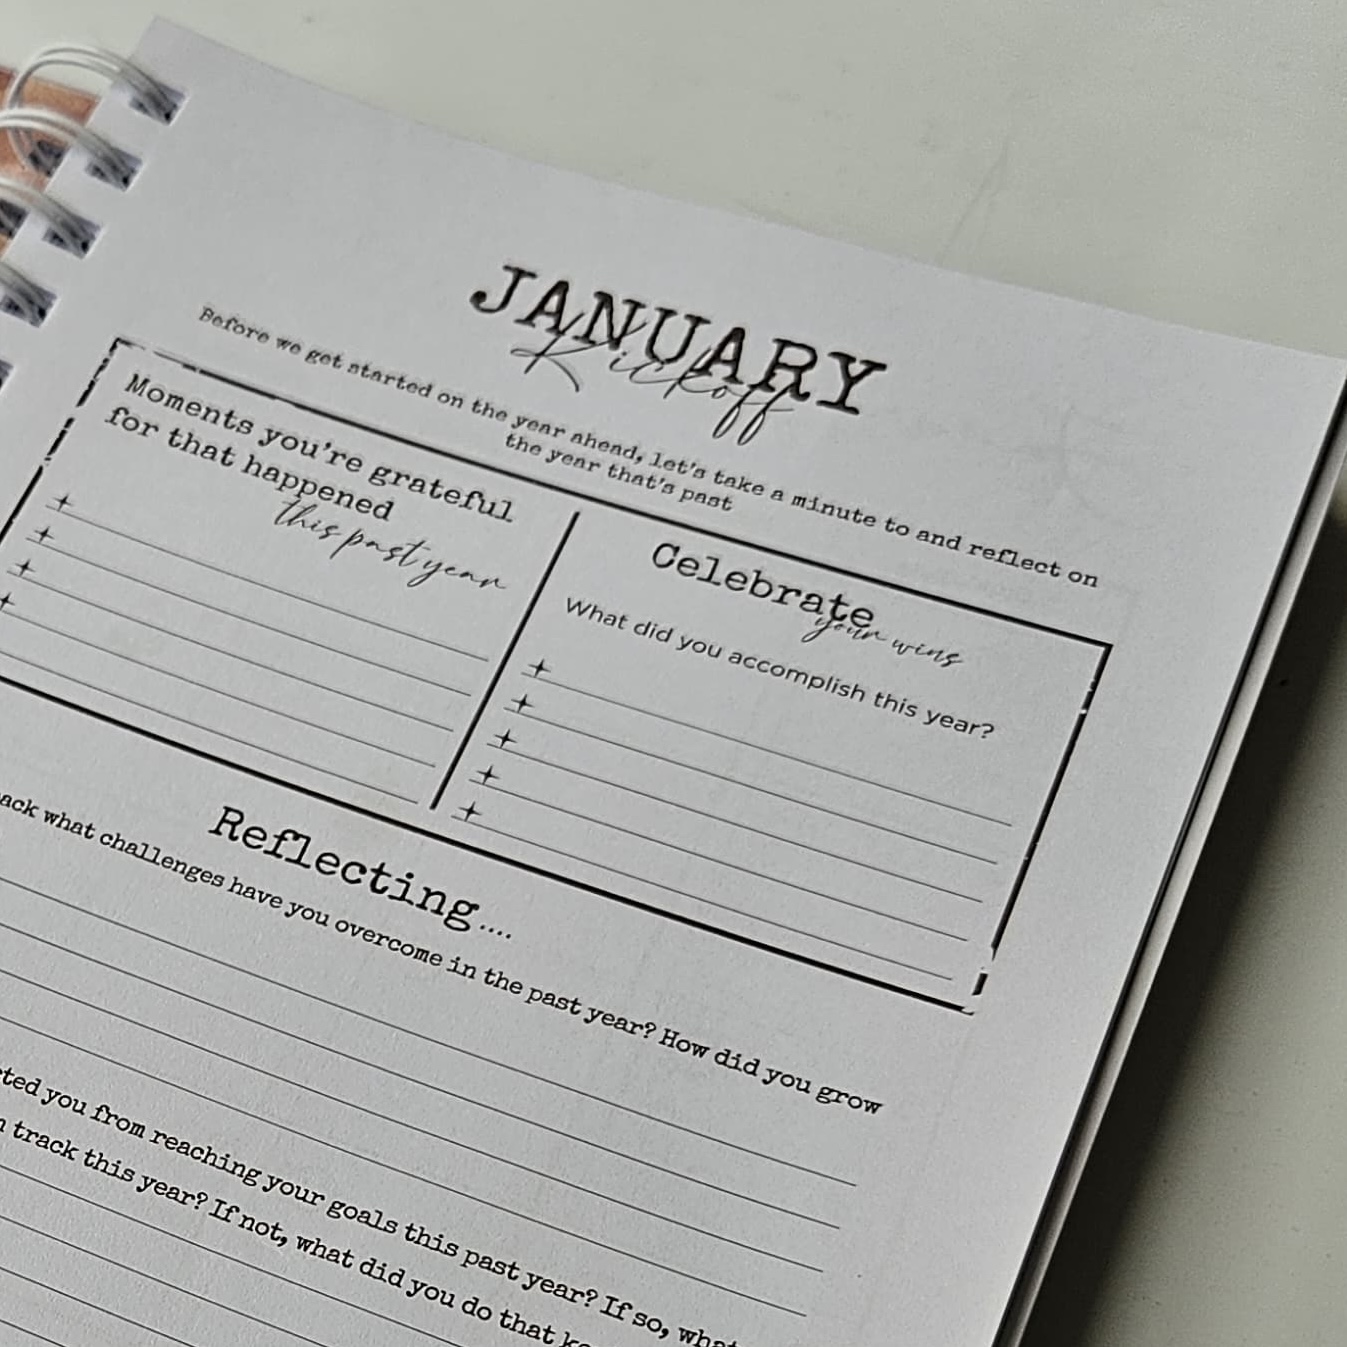 JANUARY
Kickoff
Before we get started on the year ahead, let's take a minute to and reflect on
the year that's past
Moments you're grateful
for that happened
this past year
Celebrate
your wins
What did you accomplish this year?
Reflecting....
what challenges have you overcome in the past year? How did you grow
you from reaching your goals this past year? If so, what
track this year? If not, what did you do that